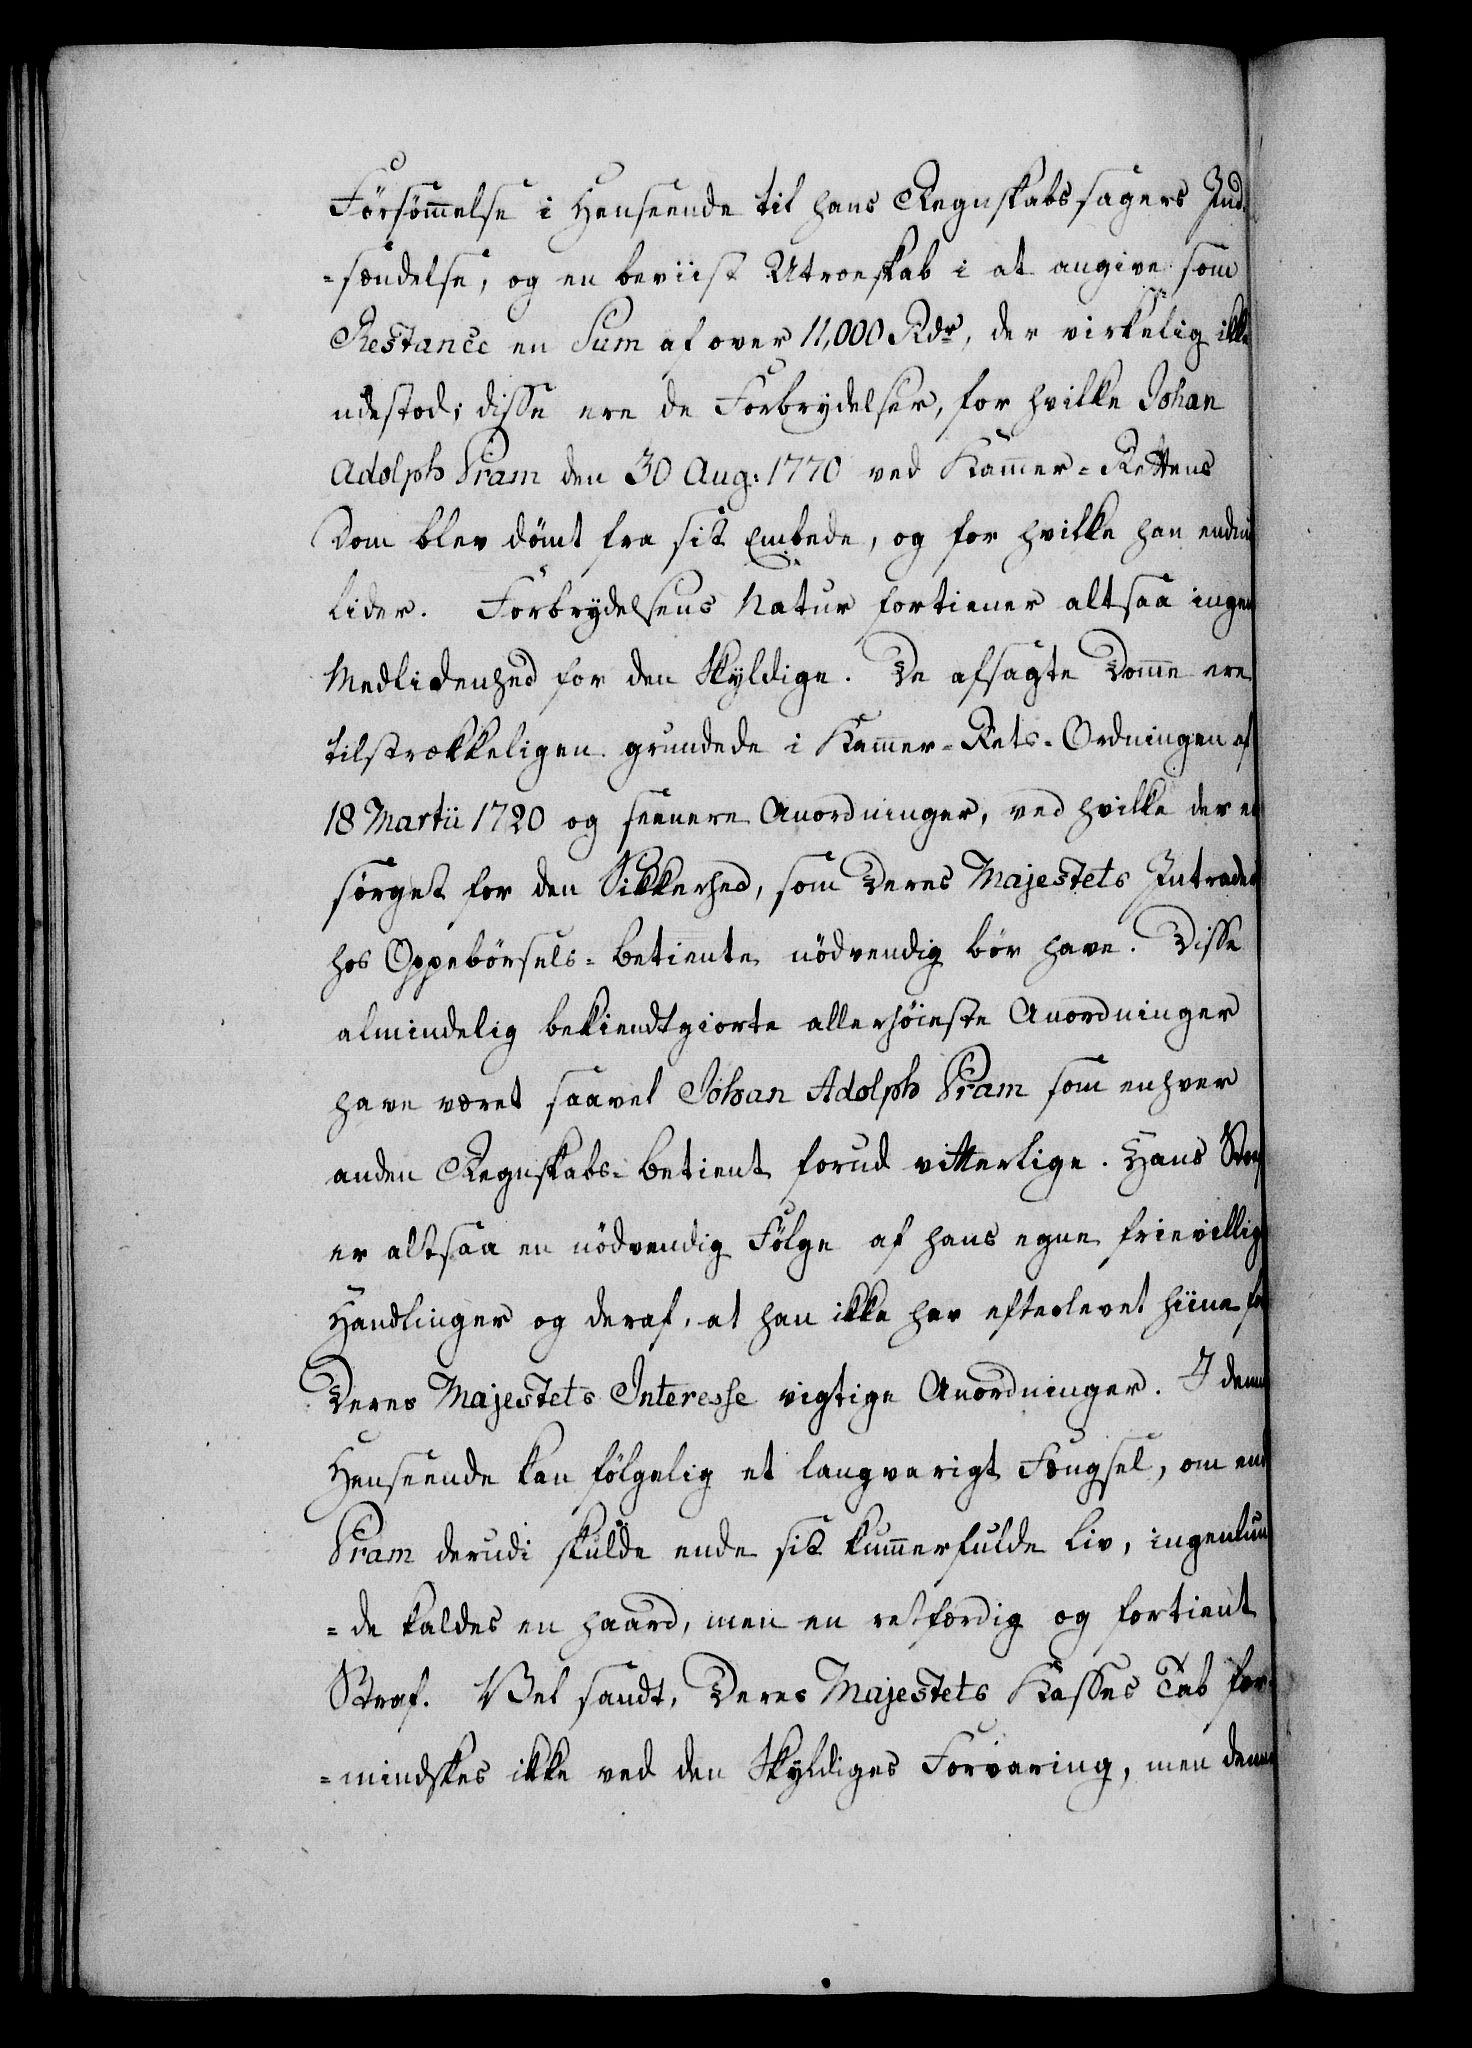 Försömmelse i Henseende til hans Regnskabssagers Ind-
-sendelse, og en beviist Utroeskab i at angive som
Restance en Sum af over 11,000 Rdr, der virkelig ikke
udestod; disse ere de Forbrydelser, for hvilke Johan
Adolph Pram den 30 Aug: 1770 ved Kammer-Rettens
Dom blev dömt fra sit Embede, og for hvilke han endnu
lider. Forbrydelsens Natur fortiener altsaa ingen
Medlidenhed for den Skyldige. De afsagte Domme ere
tilstrækkeligen grundede i Kammer-Rets-Ordningen af
18 Martii 1720 og seenere Anordninger, ved hvilke der er
sörget for den Sikkerhed, som Deres Majestets Intrader
hos Oppebörsels-betiente nödvendig bör have. Disse
almindelig bekiendtgiorte allerhöieste Anordninger
have været saavel Johan Adolph Pram som enhver
anden Regnskabs-betient forud vitterlige. Hans Straf
er altsaa en nödvendig Fölge af hans egne frievillige
Handlinger og deraf, at han ikke har efterlevet hiine for
Deres Majestets Interesse vigtige Anordninger. I denne
Henseende kan fölgelig et langvarigt Fængsel, om end
Pram derudi skulde ende sit kummerfulde Liv, ingenlun
-de kaldes en haard, men en retfærdig og fortient
Straf. Vel sandt, Deres Majestets Kasses Tab for-
-mindskes ikke ved den Skyldiges Forvaring, men denne